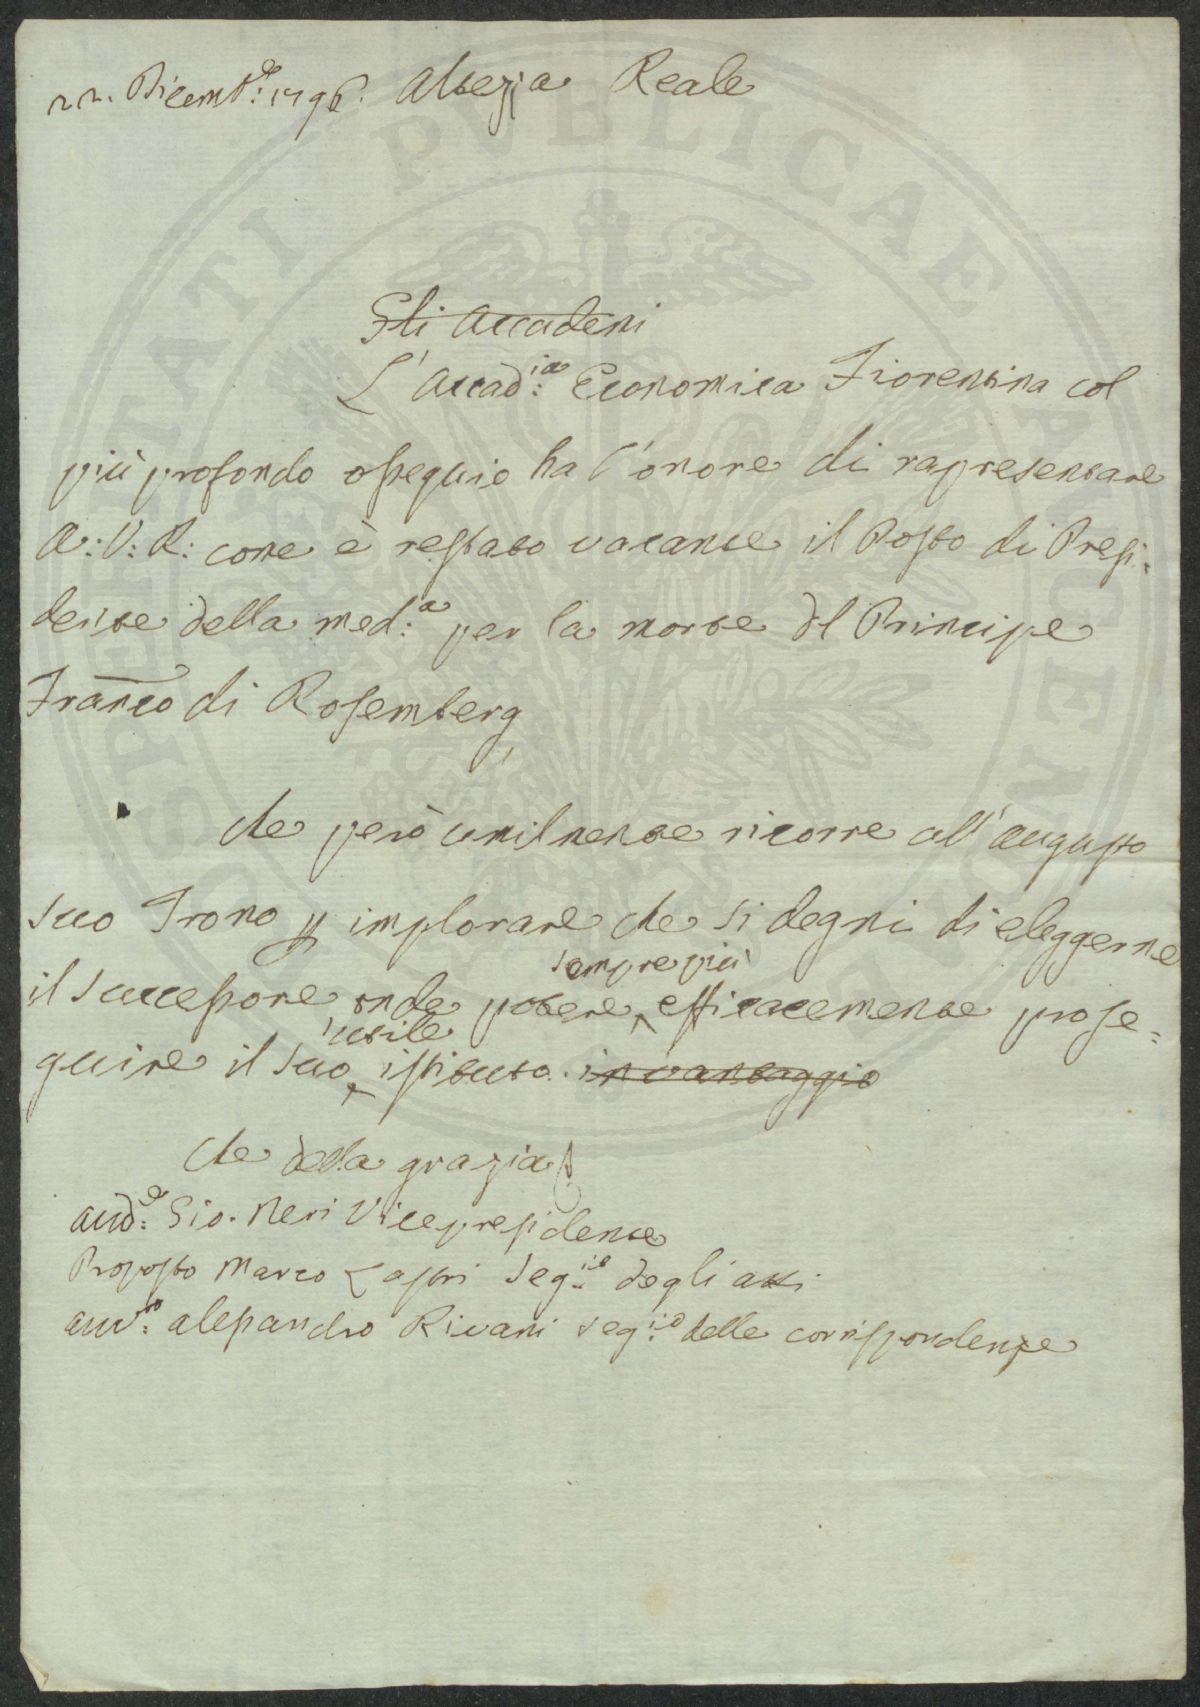 22. Dicemb:re 1796. Altezza Reale
Gli Accademi
L'Accad:ia Economica Fiorentina col
più profondo ossequio ha l'onore di rapresentare
A: V: R: come è restato vacante il Posto di Presi-
dente della med:a per la morte del Principe
Franco di Rosemberg,
Che però umilmente ricorre all'augusto
suo Trono p implorare che si degni di eleggerne
sempre più
il Successore onde potere efficacemente prose=
utile
guire il suo istituto. in vantaggio
Che della grazia
Aud:e Gio. Neri Vicepresidente
Proposto Marco Lastri Seg:io degli atti
Avv:o Alessandro Rivani Seg:io delle corrispondenze
SOCIETATI PVBLICAE